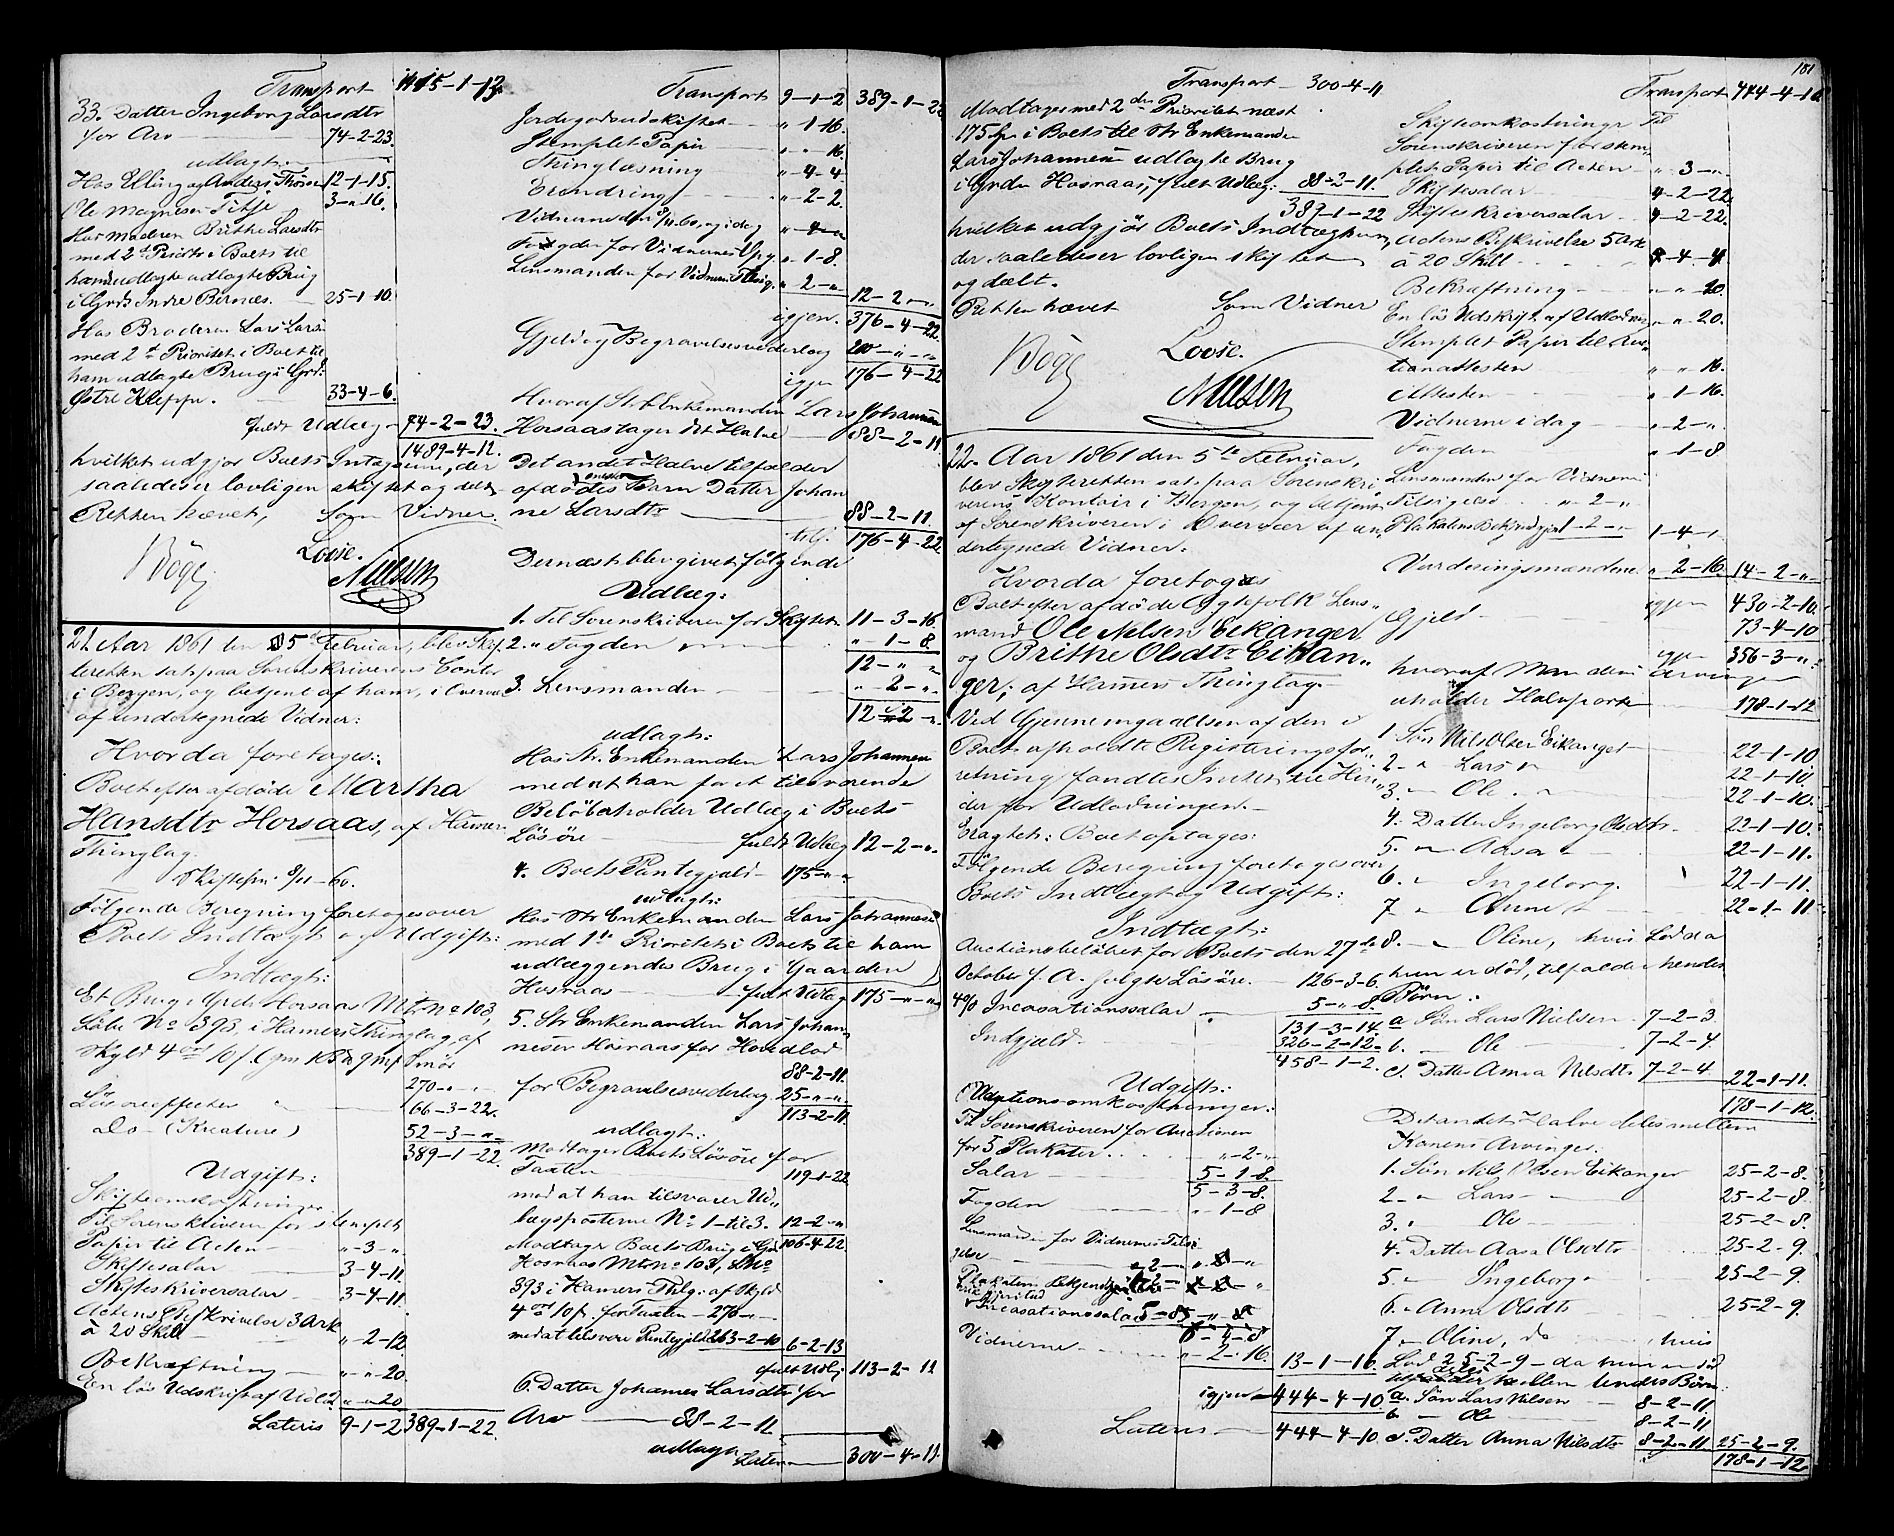 Transport 1415-1-13.
33. Datter Ingeborg Larsdtr
for Arv 74-2-23.
udlagt:
Hos Elling og Anders Thorsen 12-1-15.
Ole Magnesen Titje 3-"-16.
Hos Moderen Brithe Larsdtr
med 2den Priorit i Boets til
hende udlagte Brug
i Grd Indre Bernæs. 25-1-10.
Hos Broderen Lars Larsen
med 2den Prioritet i Boets til
ham udlagte Brug i Grd.
Østre Kleppe. 33-4-6.
fuldt Udlæg 74-2-23.
1489-4-12.
hvilket udgjør Boets Intægterne, der
saaledes er lovligen skiftet og delt.
Retten hævet, Som Vidner.
Bøgh Loose.
Nielsen
21. Aar 1861 den 5te Februar, blev Skif-
teretten sat paa Sorenskriverens Contor
i Bergen, og betjent af ham, i Overvær
af undertegnede Vidner:
Hvorda foretoges:
Boet efter afdøde Martha
Hansdtr Horsaas, af Hamers
Thinglag.
Skiftefm. 9/11-60.
Følgende Beregning foretoges over
Boets Indtægt og Udgift:
Indtægt:
Et Brug i Grd. Horsaas Mtr. No 103,
Løbe No 393, i Hamers Thinglag, af
Skyld 4 ort 10 s.
270-"-"
Løsøreeffecter 66-3-22.
do - (Kreature) 52-3-"-
389-1-22.
Udgift:
Skifteomkostninger
Til Sorenskriveren for stemplet
Papir til Acten "-3-".
Skiftesalar 3-4-11.
Skifteskriversalar 3-4-11
Actens Beskrivelse 3 Ark
à 20 Skill "-2-12
Bekræftning "-"-20.
En løs Udskrift af Udlod. "-"-20
Lateris 9-1-2 389-1-22.
Transport 9-1-2 389-1-22
Jordegodsudskiftet "-1-16.
Stemplet Papir "-"-16.
Thinglæsning "-4-4
Erindring "-2-2.
Vidnerne den 9/11.60 og idag "-4-"
Fogden for Vidnernes Opg. "-1-8.
Lensmanden for Vidnernes Tilsig. "-2-" 12-2-"
igjen. 376-4-22.
Gjeld og Begravelsesvederlag 200-"-"
igjen 176-4-22
Hvoraf Str. Enkemanden Lars Johannesen
Horsaas tager det Halve 88-2-11
Det andet Halve tilfalder
afdødes eneste Barn Datter Johan
ne Larsdtr 88-2-11.
tilf. 176-4-22.
Dernæst blev givet følgende
Udlæg:
1. Til Sorenskriveren for Skiftet 11-3-16
2. " Fogden "-1-8.
12-"-"
3. Lensmanden "-2-"
12-2-".
udlagt:
Hos Str. Enkemanden Lars Johannesen
med at han for et tilsvarende
Beløb beholder Udlæg i Boets
Løsøre fuldt Udlæg 12-2-".
4. Boets Pantegjæld 175-"-"
udlagt:
Hos Str. Enkemanden Lars Johannesen
med 1ste Prioritet i Boets til ham
udlæggende Brug i Gaarden
Hosraas fult Udlæg 175-"-"
5. Str. Enkemanden Lars Johan-
nesen Hosraas for Hovedlod
88-2-11.
for Begravelsesvederlag 25-"-"
113-2-11.
udlagt:
Modtager Boets Løsøre for
Taxten 119-1-22
mod at han tilsvarer Ud-
lægsposterne No 1-til 3. 12-2-"
106-4-22.
Modtager Boets Brug i Grd.
Hosraas Mtr No 103, L No
393 i Hamers Thlg. af Skyld
4 ort 10 s. for Taxten 270-"-
med at tilsvare Pantegjeld 263-2-10 6-2-13
fult Udlg 113-2-11
6. Datter Johanne Larsdtr for
Arv 88-2-11
udlagt
Lateris 300-4-11.
181
Transport 300-4-11
Modtager med 2den Prioritet næst
175 Spd i Boets til Str Enkemanden
Lars Johannesen udlagte Brug
i Grden Hosraas, fult Udlæg. 88-2-11.
389-1-22
hvilket udgjør Boets Indtægt som
der saaledes er lovligen skiftet
og deelt.
Retten hævet Som Vidner
Bøgh Loose.
Nielsen
22. Aar 1861 den 5te Februar,
blev Skifteretten sat paa Sorenskri
verens Kontoir i Bergen, og betjent
af Sorenskriveren i Overvær af un
dertegnede Vidner:
Hvorda foretoges
Boet efter afdøde Ægtefolk Lens-
mand Ole Nelsen Eikanger
og Brithe Olsdtr Eikan-
ger, af Hamers Thinglag.
Ved Gjennemgaaelsen af den i
Boet afholdte Registeringsfor-
retning fandtes Intet til Hin-
der for Udlodningen.
Eragtet: Boet optages:
Følgende Beregning foretoges over
Boets Indtægt og Udgift:
Indtægt:
Auctionsbeløbet for Boets den 27de
October f. A. solgte Løsøre. 126-3-6.
4% Incasationssalar 5-"-8.
131-3-14.
Indgjæld. 326-2-12.
458-1-2.
Udgift:
Auctionsomkostninger:
Til Sorenskriveren for Auctionen
for 3 Plakater "-2-"
Salar 5-1-8.
5-3-8.
Fogden "-1-8
Lensmanden for Vidnernes Tilsi-
gelse "-2-"
Plakatens Bekjendtgjørelse
Incasationssalar
6-4-8
Vidnerne "-2-16. 13-1-16.
igjen 444-4-10
Lateris 444-4-10.
Transport 444-4-10
Skifteomkostninger Til
Sorenskriveren for stem-
plet Papir til Acten "-3-".
Skiftesalar 4-2-22.
Skifteskriversalar 4-2-22.
Actens Beskrivelse 5 Ark
à 20 Skill "-4-4.
Bekræftning "-"-20.
En løs Udskrift af Udlodn. "-"-20.
Stemplet Papir til Auc-
tionattesten "-"-16.
Attesten "-1-16.
Vidnerne i dag "-2-".
Fogden "-1-8
Lensmanden for Vidnernes
Tilsigelse "-2-"
Plakatens Bekjendtgjør. 1-2-" 1-4-"
Vurderingsmændene "-2-16. 14-2-"
igjen 430-2-10.
Gjeld 73-4-10
igjen 356-3-"
hvoraf Mandens Arvinger
erholder Halvparten 178-1-12
1. Søn Nils Olsen Eikanger 22-1-10
2. " Lars 22-1-10
3. " Ole 22-1-10.
4. Datter Ingeborg Olsdtr. 22-1-10.
5. " Aasa 22-1-11.
6. " Ingeborg. 22-1-11.
7. " Anne 22-1-11
8. " Oline, hvis Lod da
hun er død, tilfalder hendes
Børn:
a. Søn Lars Nielsen 7-2-3.
b. " Ole 7-2-4.
c. Datter Anna Nilsdtr 7-2-4 22-1-11.
178-1-12.
Det andet Halve deles mellem
Konens Arvinger:
1. Søn Nils Olsen Eikanger 25-2-8.
2. " Lars 25-2-8.
3. " Ole 25-2-8.
4. Datter Aasa Olsdtr 25-2-9.
5. " Ingeborg 25-2-9.
6. " Anne Olsdtr 25-2-9.
7. " Oline, do hvis
Lod 25-2-9 - da hun er død
deles mellem hendes Børn:
a. Søn Lars Nilsen 8-2-11.
b. " Ole 8-2-11
c. Datter Anna Nilsdtr 8-2-11 25-2-9.
178-1-12.